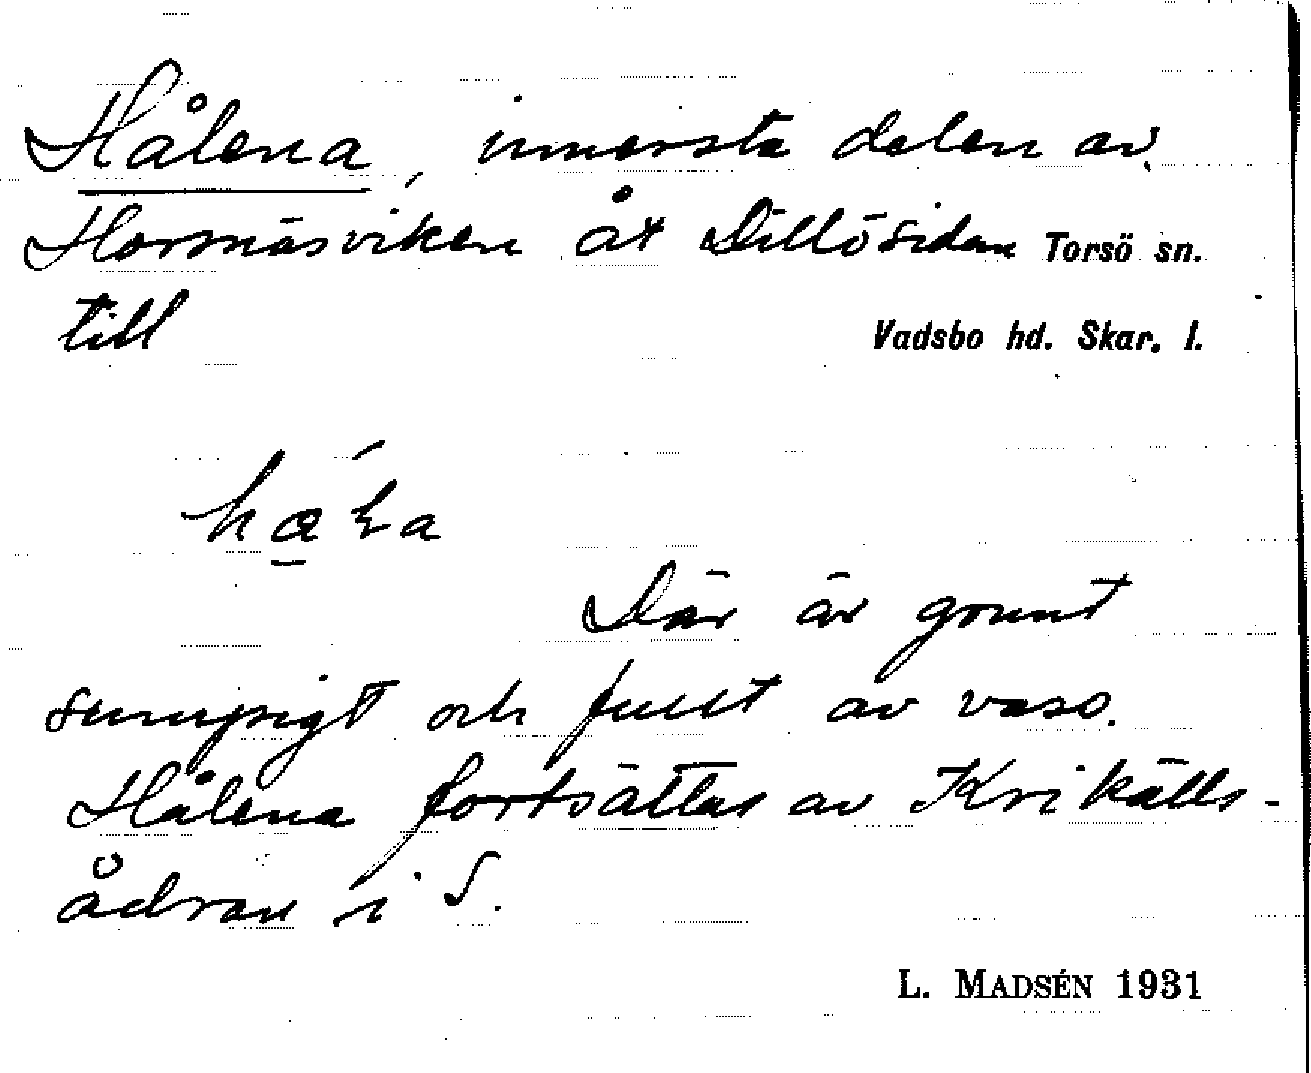 Hålena, innersta delen av
Hornäsviken åt Dillösidan Torsö sn.
till Vadsbo hd. Skar. l.
Där är grunt
sumpigt och fullt av vass.
Hålena fortsättes av Krikälls-
ådran i S.
L. MADSÉN 1931